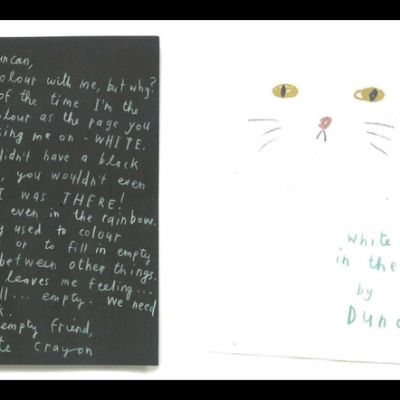 uncan,
olour with me, but why?
of the time I'm the
lour as the page you
sing me on - WHITE.
didn't have a black
, you wouldn't even
I was THERE!
even in the rainbow.
y used to colour
or to fill in empty
between other things.
leaves me feeling...
ll... empty. We need
k.
empty friend,
te crayon
white
in the
by
Dunc